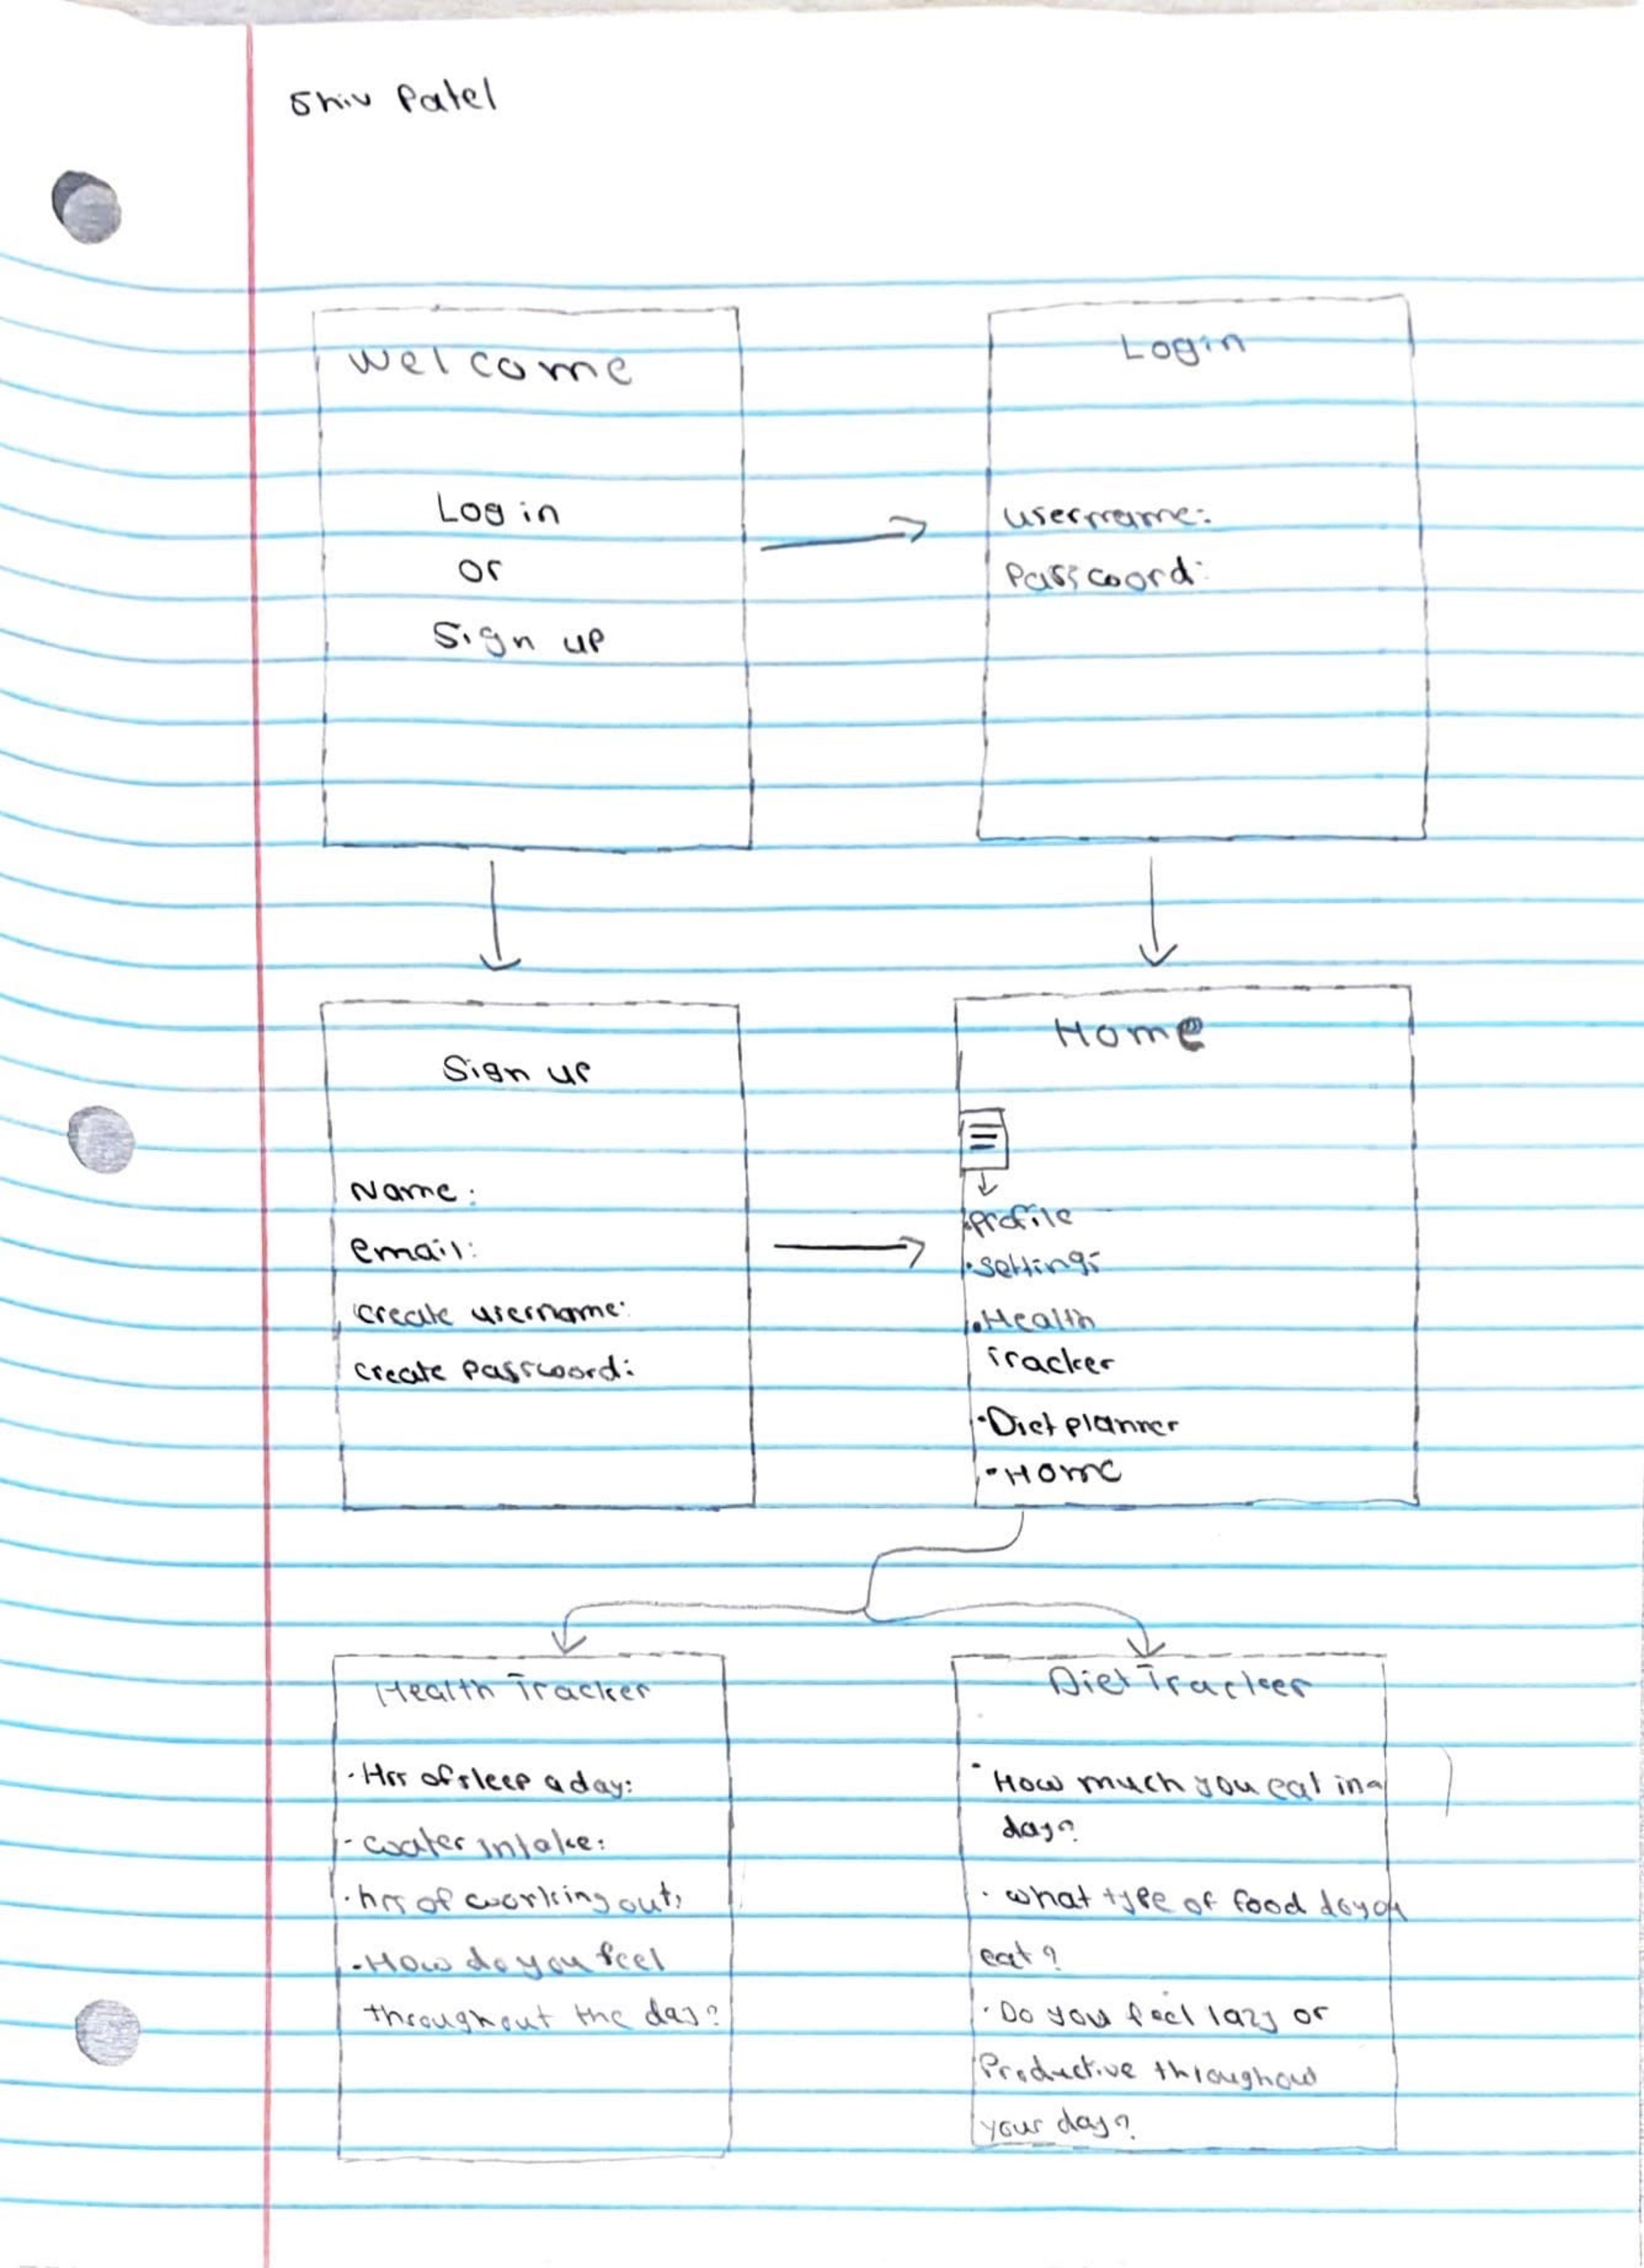 Shiv Patel
Welcome
Log in
or
Sign up
Login
username:
Password:
Sign up
Name:
email:
create username:
create password:
Home
profile
settings
Health
Tracker
Diet planner
Home
Health Tracker
Hrs of sleep a day:
water intake:
hrs of working out:
How do you feel
throughout the day?
Diet Tracker
How much you eat in a
day?
what type of food do you
eat?
Do you feel lazy or
Productive throughout
your day?